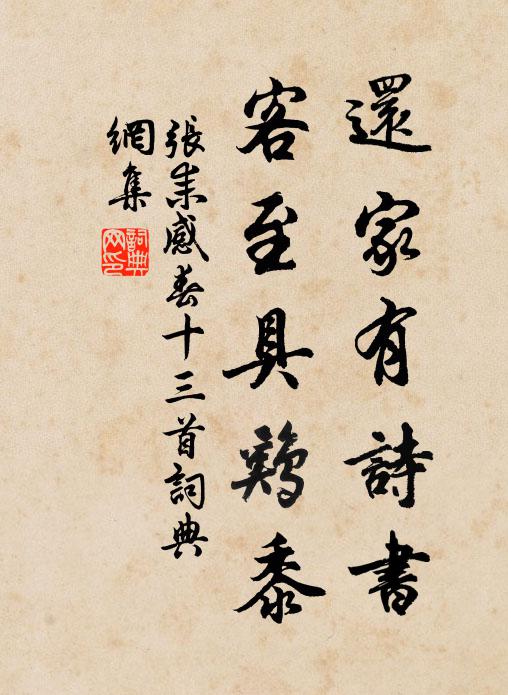 還家有詩書
客至具鷄黍
張耒感春十三首詞典
網集
詞典
网印